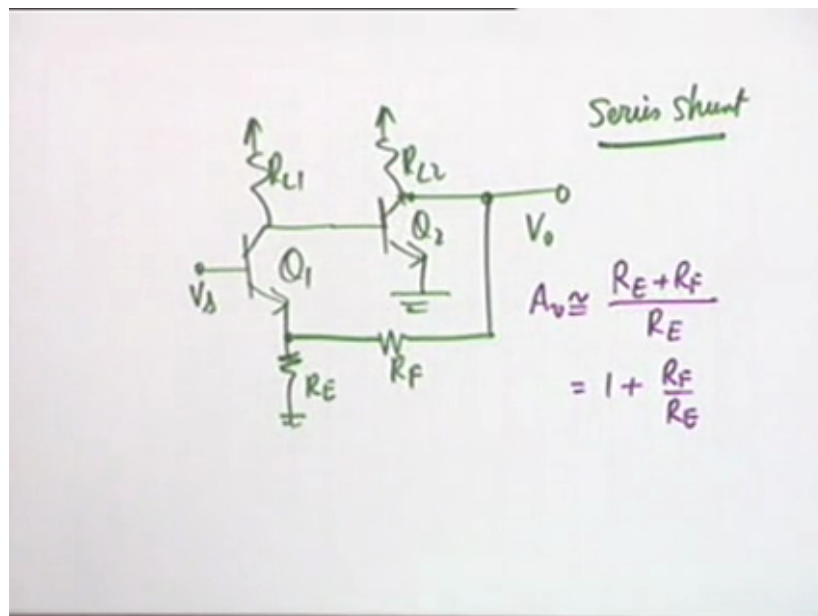 Series Shunt
RL1
RL2
Q1
Q2
Vs
Vo
RE
RF
Av ≅ RE + RF / RE
= 1 + RF / RE